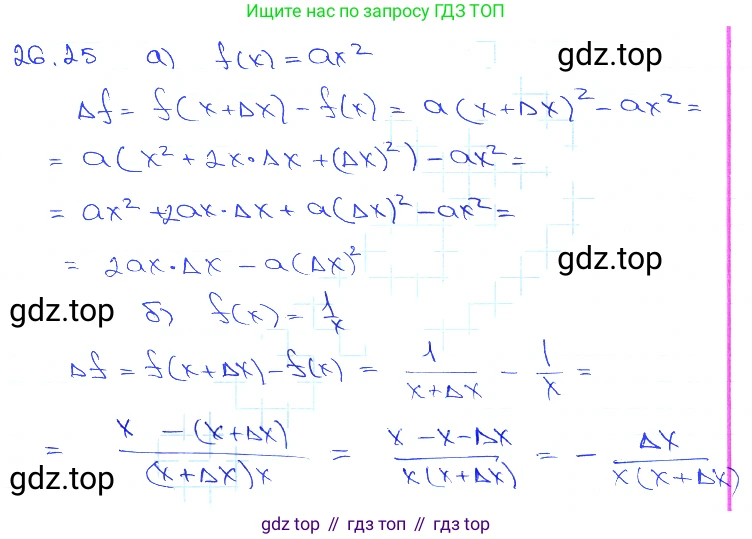 Ищите нас по запросу ГДЗ ТОП
26.25 а) f(x) = ax² gdz.top
Δf = f(x+Δx) - f(x) = a(x+Δx)² - ax² =
= a(x² + 2x·Δx + (Δx)²) - ax² =
= ax² + 2ax·Δx + a(Δx)² - ax² =
= 2ax·Δx - a(Δx)² gdz.top
gdz.top б) f(x) = 1/x
Δf = f(x+Δx) - f(x) = 1/(x+Δx) - 1/x =
= (x - (x+Δx))/((x+Δx)x) = (x - x - Δx)/(x(x+Δx)) = - Δx/(x(x+Δx))
gdz.top
gdz.top // гдз топ // гдз top